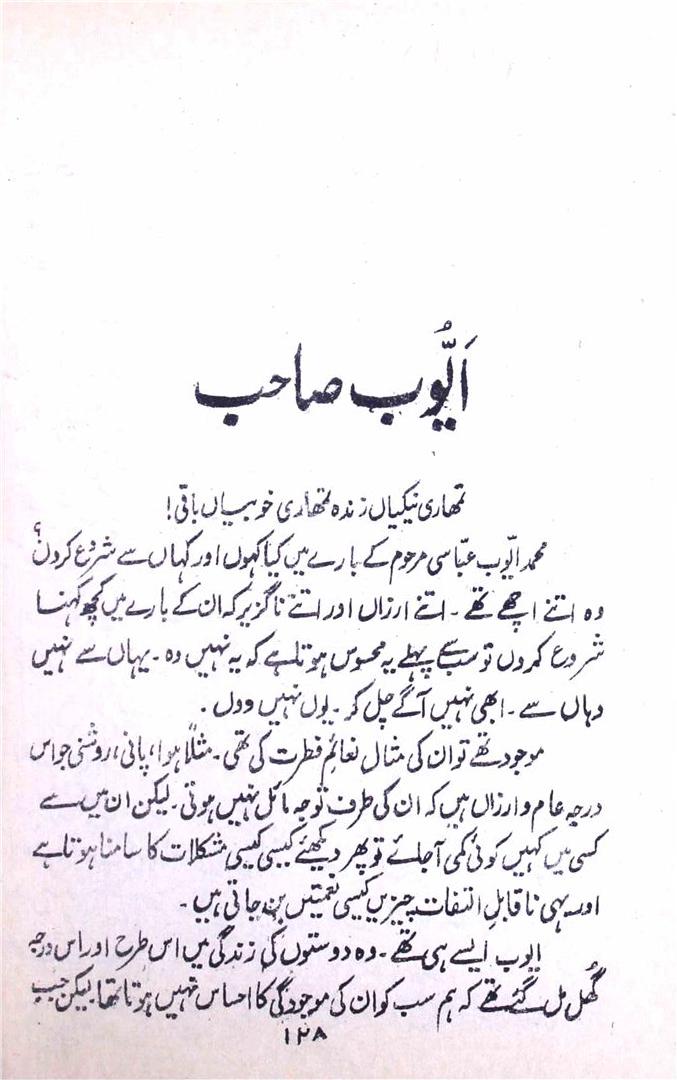 اَیُّوب صاحب
تمھاری نیکیاں زندہ تمھاری خوبیاں باقی!
محمد ایّوب عبّاسی مرحوم کے بارے میں کیا کہوں اور کہاں سے شروع کروں؟
وہ اتنے اچھے تھے ۔ اتنے ارزاں اور اتنے ناگزیر کہ ان کے بارے میں کچھ کہنا
شروع کروں تو سب سے پہلے یہ محسوس ہوتا ہے کہ یہ نہیں وہ ۔ یہاں سے نہیں
وہاں سے ۔ ابھی نہیں آگے چل کر ۔ یوں نہیں ووں ۔
موجود تھے تو ان کی مثال نعائمِ فطرت کی تھی ۔ مثلاً ہوا، پانی، روشنی جو اس
درجہ عام و ارزاں ہیں کہ ان کی طرف توجہ مائل نہیں ہوتی ۔ لیکن ان میں سے
کسی میں کہیں کوئی کمی آجائے تو پھر دیکھئے کیسی کیسی مشکلات کا سامنا ہوتا ہے
اور یہی ناقابلِ التفات چیزیں کیسی نعمتیں بن جاتی ہیں ۔
ایوب ایسے ہی تھے ۔ وہ دوستوں کی زندگی میں اس طرح اور اس درجہ
گھُل مل گئے تھے کہ ہم سب کو ان کی موجودگی کا احساس نہیں ہوتا تھا لیکن جب
۱۲۸